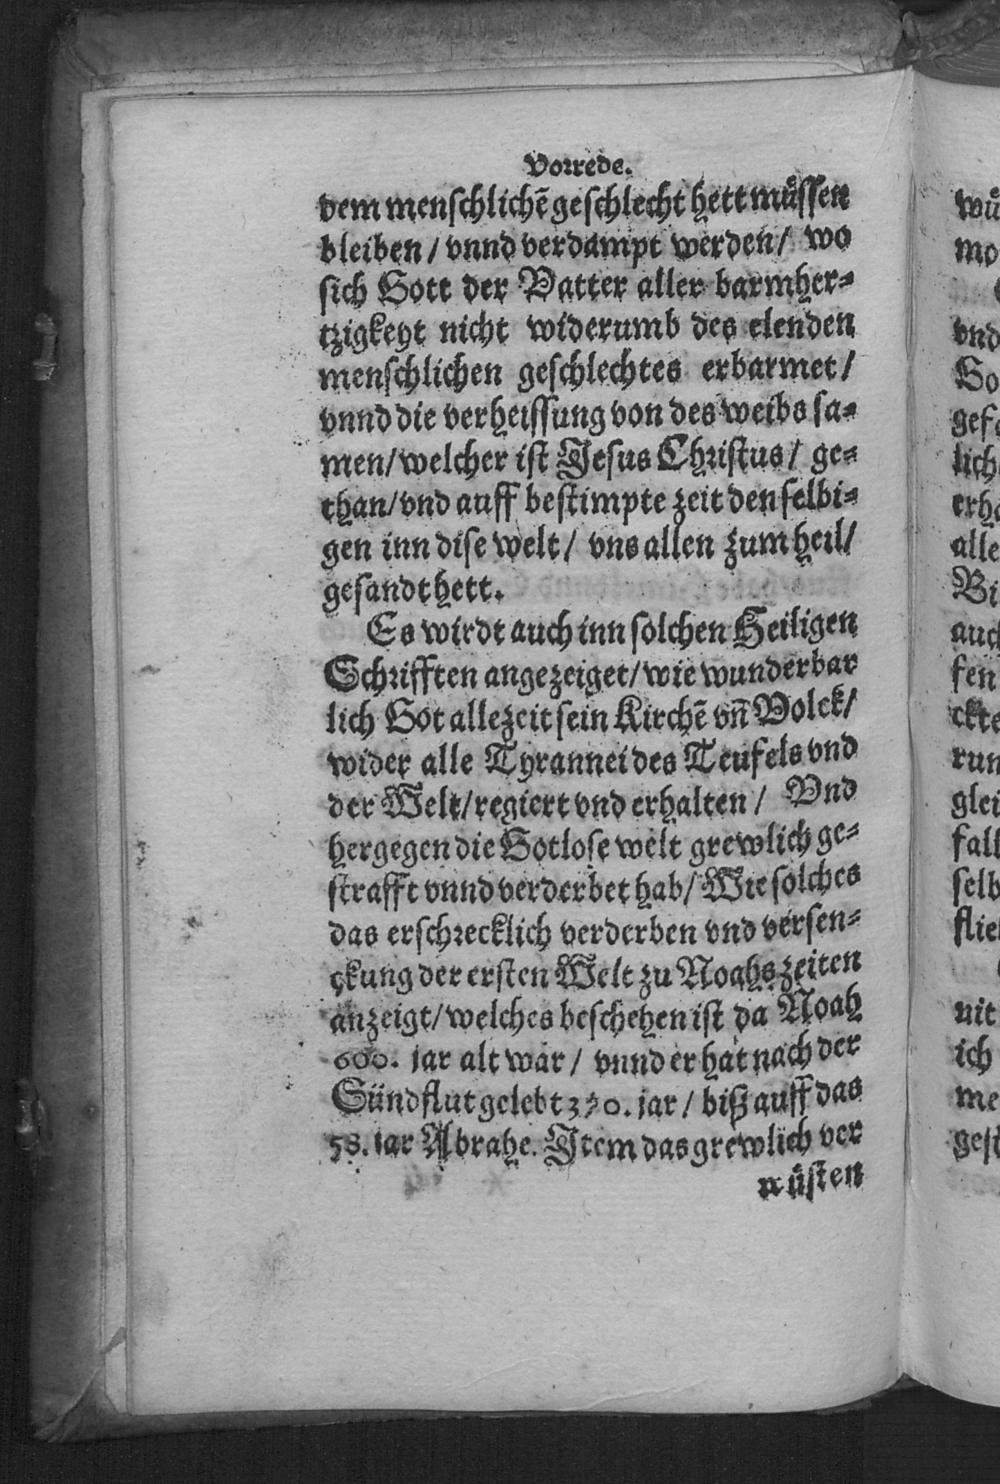 Vorrede.
dem menschlichē geschlecht hett müssen
bleiben / vnnd verdampt werden / wo
sich Gott der Vatter aller barmher-
tzigkeyt nicht widerumb des elenden
menschlichen geschlechtes erbarmet /
vnnd die verheissung von des weibs sa-
men / welcher ist Jesus Christus / ge-
than / vnd auff bestimpte zeit den selbi-
gen inn dise welt / vns allen zum heil /
gesandt hett.
Es wirdt auch inn solchen Heiligen
Schrifften angezeiget / wie wunderbar
lich Got allezeit sein Kirchē vn̄ Volck /
wider alle Tyrannei des Teufels vnd
der Welt / regiert vnd erhalten / Vnd
hergegen die Gotlose welt grewlich ge-
strafft vnnd verderbet hab / Wie solches
das erschrecklich verderben vnd versen-
ckung der ersten Welt zu Noahs zeiten
anzeigt / welches beschehen ist da Noah
600. jar alt war / vnnd er hat nach der
Sündflut gelebt 350. jar / biß auff das
58. jar Abrahe. Item das grewlich ver
wüsten
wü
mo
vnd
Go
gef
lich
erha
alle
Bi
auch
fen
ckte
run
glei
fall
selb
flie
nit
ich
me
gest